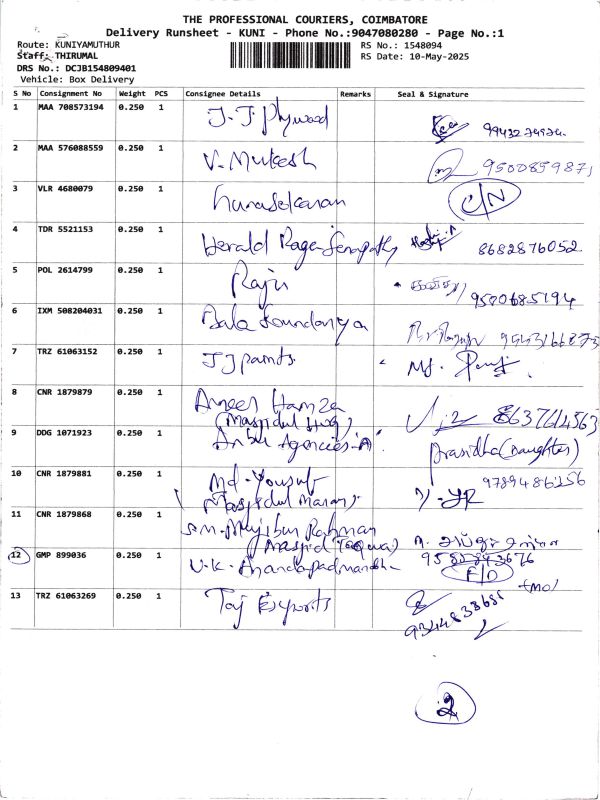 THE PROFESSIONAL COURIERS, COIMBATORE
Delivery Runsheet - KUNI - Phone No.:9047080280 - Page No.:1
Route: KUNIYAMUTHUR RS No.: 1548094
Staff: THIRUMAL RS Date: 10-May-2025
DRS No.: DCJB154809401
Vehicle: Box Delivery
S No Consignment No Weight PCS Consignee Details Remarks Seal & Signature
1 MAA 708573194 0.250 1 J.J. Plywood
2 MAA 576088559 0.250 1 V. Mukesh 9500859871
3 VLR 4680079 0.250 1 Gunasekaran C/N
4 TDR 5521153 0.250 1 Herald 8682876052
5 POL 2614799 0.250 1 Raju 9500685194
6 IXM 508204031 0.250 1 Bala Soundariya
7 TRZ 61063152 0.250 1 JJ paints
8 CNR 1879879 0.250 1 Ameer Hamza 8637614563
(Masjidul Huq)
9 DDG 1071923 0.250 1 Anbu Agencies-A Prasidha (Daughter)
10 CNR 1879881 0.250 1 Md-Yousuf 9789486256
(Masjidul
11 CNR 1879868 0.250 1 S.M. Mujibur Rahman
(Masjid
12 GMP 899036 0.250 1 V.K. Anandapadmanabha F/D
13 TRZ 61063269 0.250 1 Taj Exports
9344833681
2